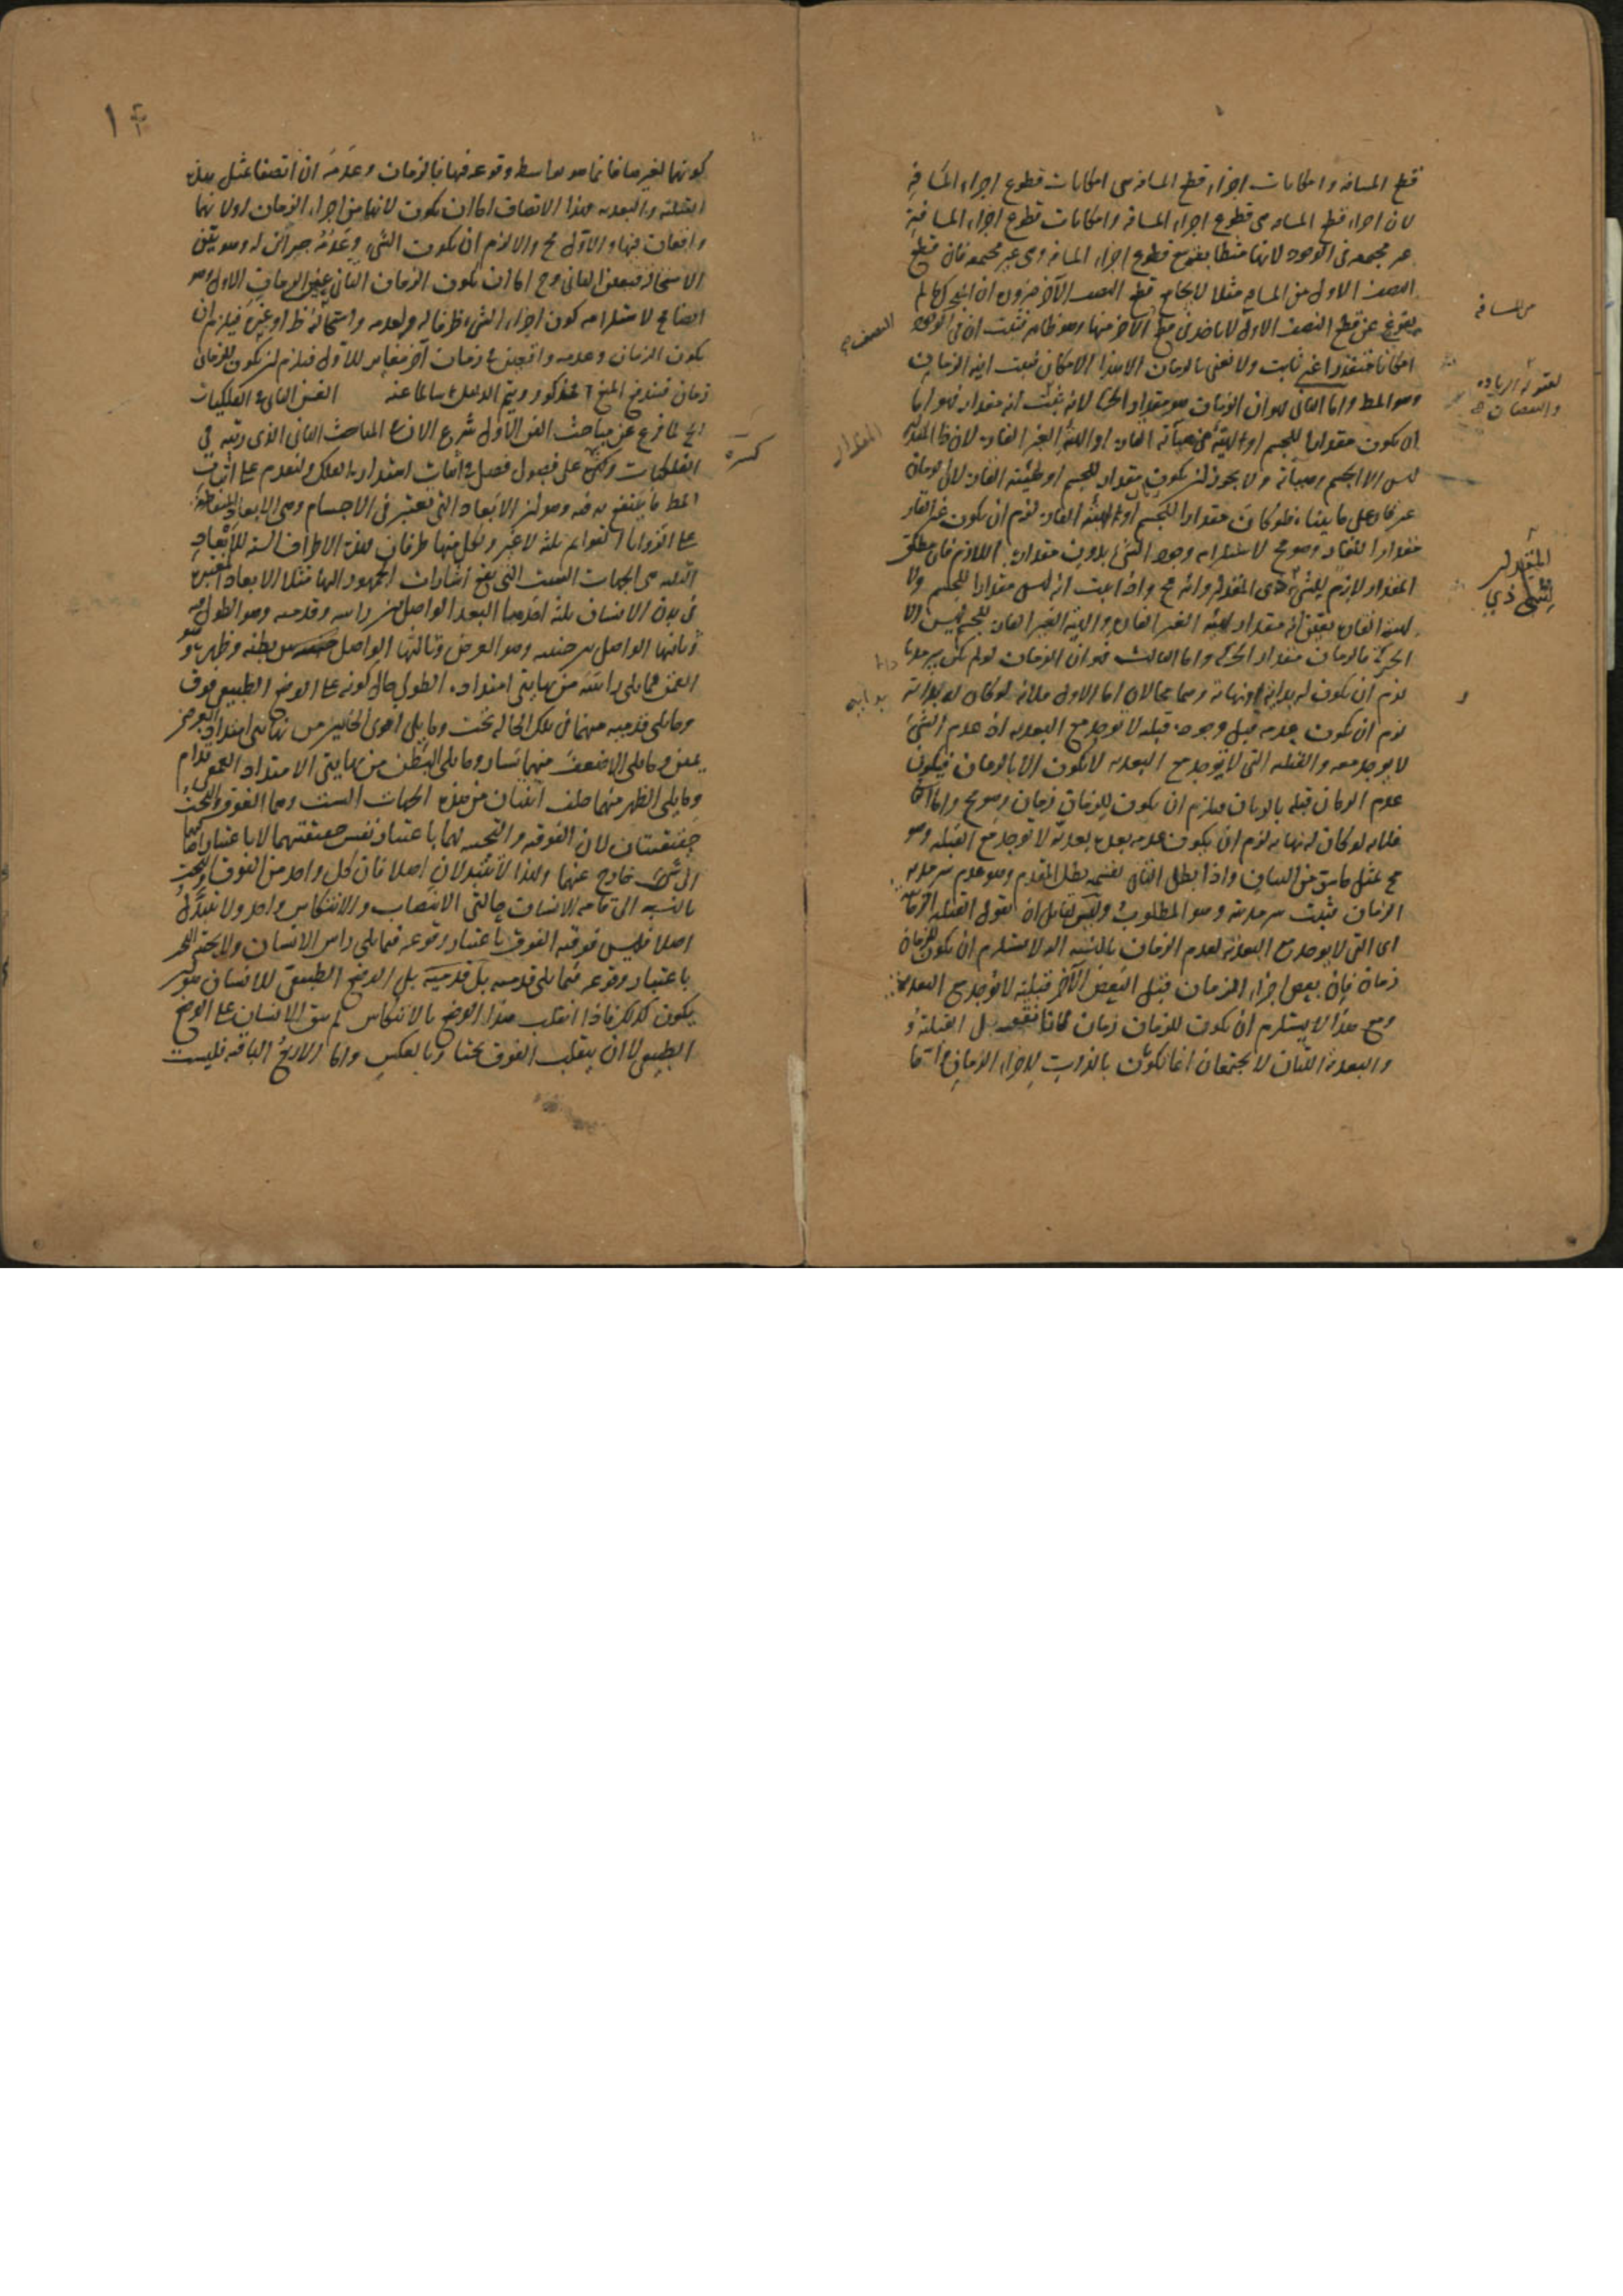 قطع المسافة وامكانات اجزاء قطع المسافة هى امكانات قطوع اجزاء المسافة
لان اجزاء قطع المسافة هى قطوع اجزاء المسافة وامكانات قطوع اجزاء المسافة
غير مجتمعة فى الوجود لانها منطبقة قطوع اجزاء المسافة وهى غير مجتمعة فان قطع
النصف الاول من المسافة مثلا لا يجامع قطع النصف الآخر ضرورة ان المتحرك ما لم
يفرغ عن قطع النصف الاول لا ياخذ فى قطع الآخر منها وهو ظاهر فثبت ان فى الوجود
امكانا متقدرا غير ثابت ولا نعنى بالزمان الا هذا الامكان فثبت انية الزمان
وهو المط واما الثانى فهو ان الزمان هو مقدار الحركة لانه ثبت انه مقدار فهو اما
ان يكون مقدارا للجسم او لهيئة من هيآته القارة او الهيئة الغير القارة لان ذا المقدار
ليس الا الجسم وهيآته ولا يجوز ان يكون مقدارا للجسم او لهيئته القارة لان الزمان
غير قار على ما بينا فلو كان مقدارا للجسم او الهيئة القارة لزم ان يكون غير القار
مقدارا للقار وهو مح لاستلزامه وجود الشئ بدون مقداره اللازم فان مطلق
المقدار لازم للشئ ذى المقدار وانه مح واذا ثبت انه ليس مقدارا للجسم ولا
لهيئة القارة تعين انه مقدار لهيئة الغير القارة والهيئة الغير القارة للجسم ليس الا
الحركة فالزمان مقدار الحركة واما الثالث فهو ان الزمان لو لم يكن سرمديا
لزم ان يكون له بداية او نهاية وهما محالان اما الاول فلانه لو كان له بداية
لزم ان يكون عدمه قبل وجوده قبلية لا توجد مع البعدية اذ عدم الشئ
لا يوجد معه والقبلية التى لا توجد مع البعدية لا تكون الا بالزمان فيكون
عدم الزمان قبله بالزمان فيلزم ان يكون للزمان زمان وهو مح واما الثانى
فلانه لو كان له نهاية لزم ان يكون عدمه بعده بعدية لا توجد مع القبلية وهو
مح بمثل ما سبق من البيان واذا بطل التالى بقسميه بطل المقدم وهو عدم سرمدية
الزمان فثبت سرمديته وهو المطلوب ولقائل ان يقول القبلية الزمانية
اى التى لا توجد مع البعدية لعدم الزمان بالنسبة اليه لا يستلزم ان يكون للزمان
زمان فان بعض اجزاء الزمان قبل البعض الآخر قبلية لا توجد مع البعدية
ومع هذا لا يستلزم ان يكون للزمان زمان
والبعدية اللتان لا يجتمعان انما تكون بالذات لاجزاء الزمان واما
من المسافة
النصف
لقبوله الزيادة
والنقصان
المقدار
المقدار
للشئ ذى
بداية
كونها لغيرها فانما هو بواسطة وقوعه فيها فالزمان وعدمه ان اتصفا بمثل هذه
القبلية والبعدية فهذا الاتصاف اما ان يكون لانهما من اجزاء الزمان او لانهما
واقعان فيها والاول مح والا لزم ان يكون الشئ وعدمه جزأين له وهو بين
الاستحالة فتعين الثانى وح اما ان يكون الزمان الثانى عين الزمان الاول وهو
ايضا مح لاستلزامه كون اجزاء الشئ ظرفا له ولعدمه واستحالته ظ او غيره فيلزم ان
يكون الزمان وعدمه واقعين فى زمان آخر مغاير للاول فيلزم ان يكون للزمان
زمان فيندفع المنع المذكور ويتم الدليل سالما عنه الفن الثانى فى الفلكيات
الخ لما فرغ عن مباحث الفن الاول شرع الان فى المباحث الثانى الذى رتبه فى
الفلكيات وهى على فصول فصل فى اثبات استدارة الفلك ولنقدم على اثبات
المط ما ينتفع به فيه وهو ان الابعاد التى تعتبر فى الاجسام وهى الابعاد المتقاطعة
على الزوايا القوائم ثلثة لا غير ولكل منها طرفان فهذه الاطراف الستة للابعاد
الثلثة هى الجهات الست التى تقع اشارات الجمهور اليها مثلا الابعاد المعتبرة
فى بدن الانسان ثلثة احدها البعد الواصل بين راسه وقدميه وهو الطول
وثانيها الواصل بين جنبيه وهو العرض وثالثها الواصل بين بطنه وظهره وهو
العمق فما يلى راسه من نهايتى امتداده الطولى حال كونه على الوضع الطبيعى فوق
وما يلى قدميه منهما فى تلك الحالة تحت وما يلى اقوى الجانبين من نهايتى امتداد العرض
يمين وما يلى الاضعف منهما يسار وما يلى البطن من نهايتى الامتداد العمقى قدام
وما يلى الظهر منهما خلف اثنتان من هذه الجهات الست وهما الفوق والتحت
حقيقيتان لان الفوقية والتحتية لهما باعتبار نفس حقيقتهما لا باعتبار اضافتهما
الى شئ خارج عنهما ولهذا لا تتبدلان اصلا فان كل واحد من الفوق والتحت
بالنسبة الى قامة الانسان حالتى الانتصاب والانتكاس واحد ولا تبدل
اصلا فليس فوقية الفوق باعتبار وقوعه فيما يلى راس الانسان ولا تحتية التحت
باعتبار وقوعه فيما يلى قدميه بل الوضع الطبيعى للانسان هو ان
يكون كذلك فاذا انقلب هذا الوضع بالانتكاس لم يبق الانسان على الوضع
الطبيعى لا ان ينقلب الفوق تحتا وبالعكس واما الاربع الباقية فليست